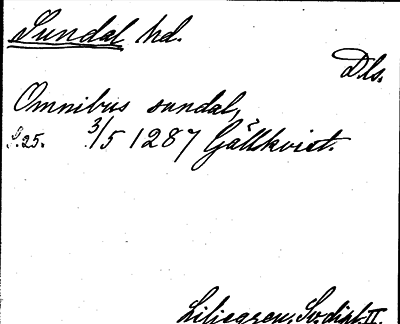 Sundal hd.
Dls.
Omnibus sundal,
s. 25. 3/5 1287 Gällkvist.
Liliegren, Sv. dipl. II.